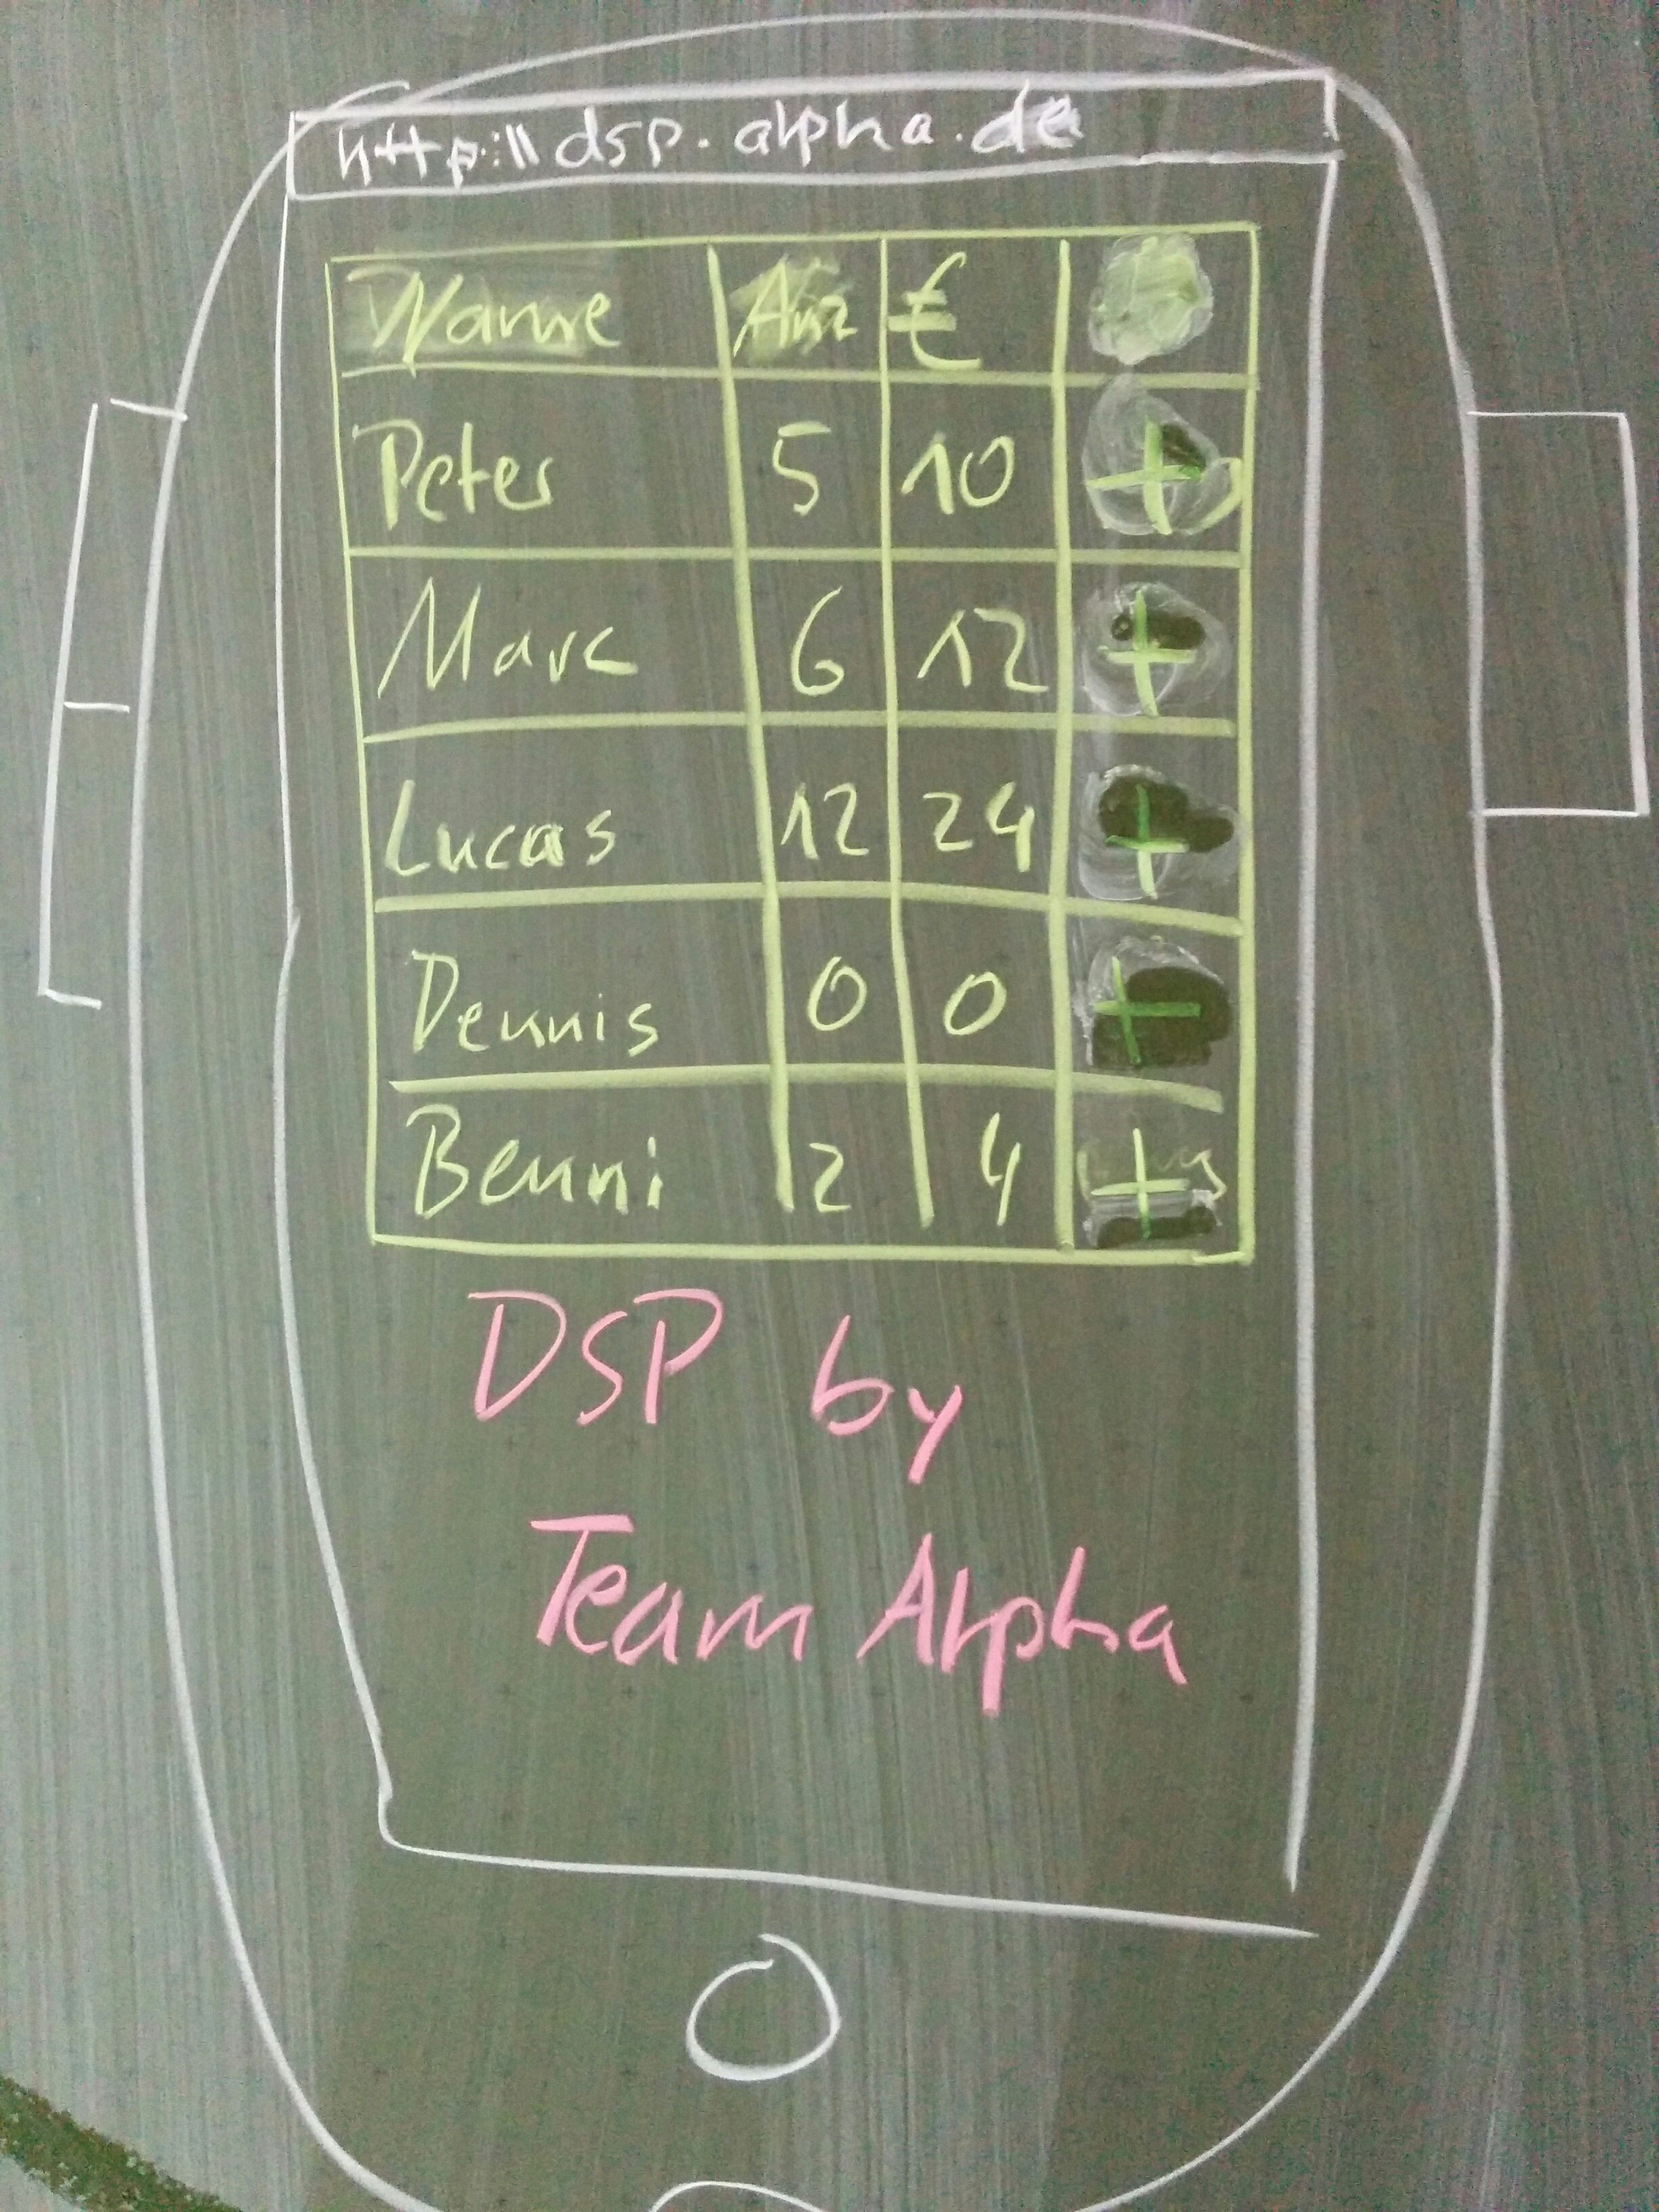 http:\\dsp.alpha.de
Name Anz €
Peter 5 10 +
Marc 6 12 +
Lucas 12 24 +
Dennis 0 0 +
Benni 2 4 +
DSP by
Team Alpha